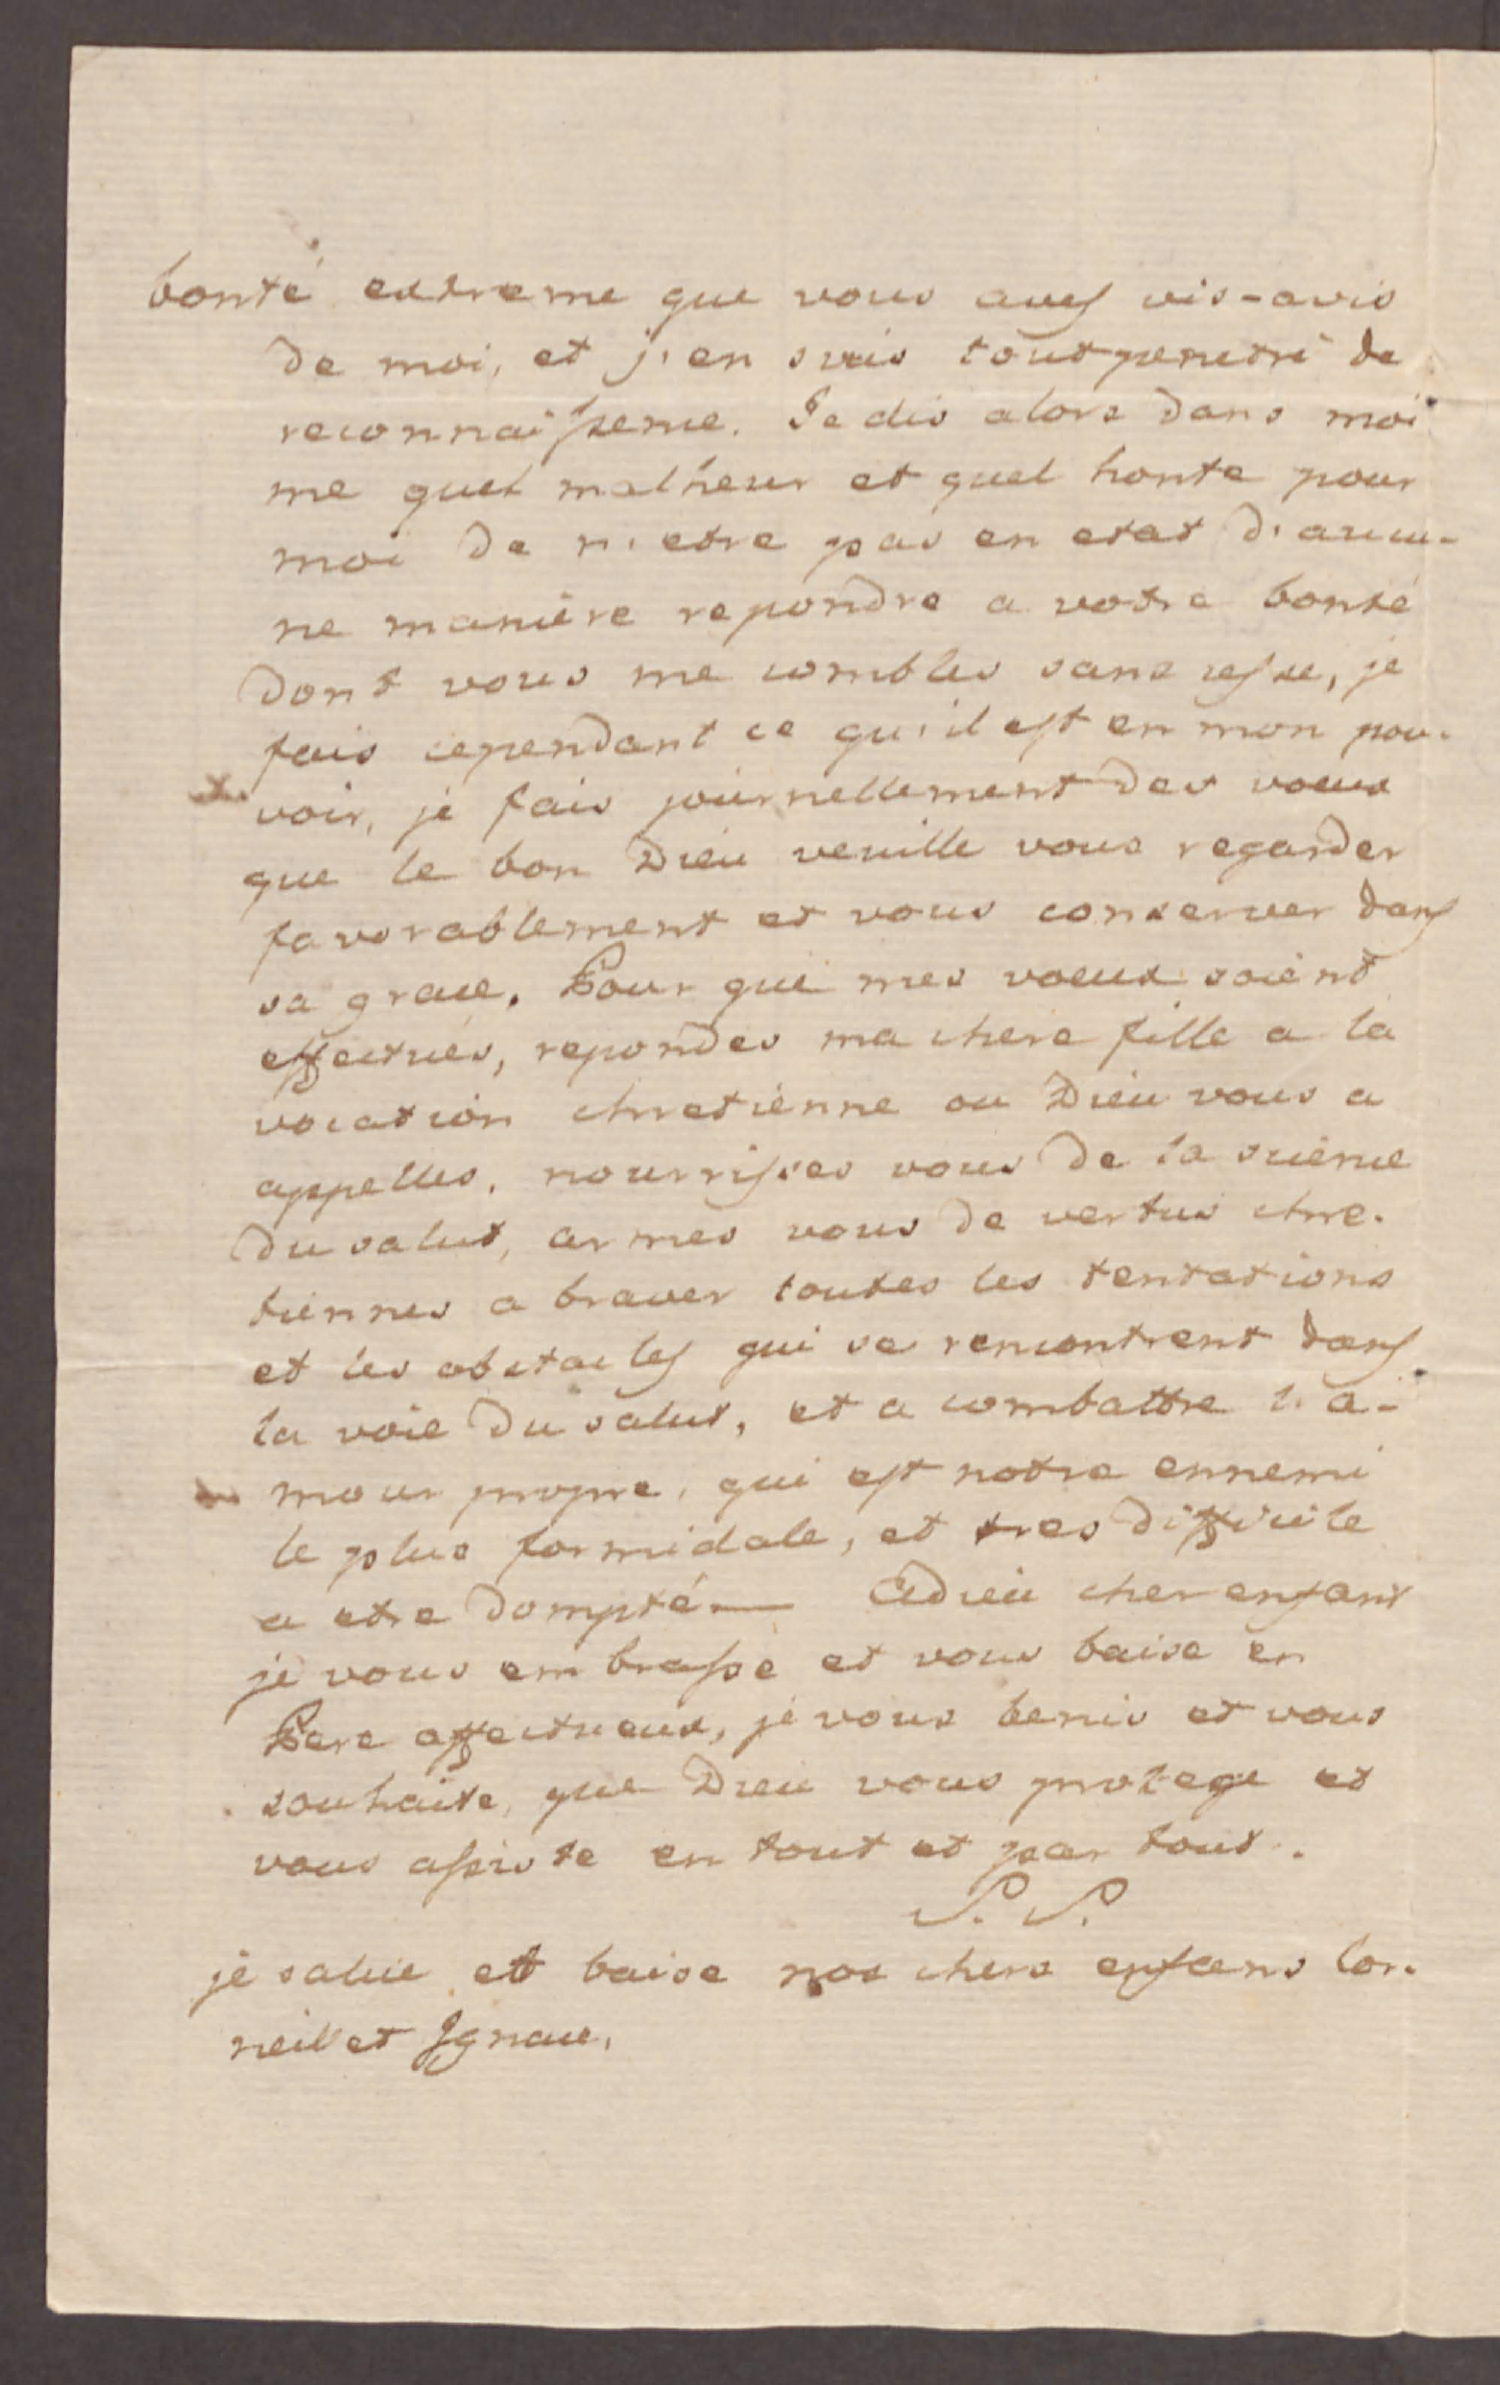 bonté extreme que vous aves vis-avis
de moi, et j'en suis tout penetré de
reconnaissence. Je dis alors dans moi
me quel malheur et quel honte pour
moi de n'etre pas en etat d'aucu-
ne maniere repondre a votre bonté
dont vous me combles sans cesse, je
fais cependant ce qu'il est en mon pou-
voir, je fais journellement des voeux
que le bon Dieu veuille vous regarder
favorablement et vous conserver dans
sa grace. Pour que mes voeux soient
effectués, repondes ma chere fille a la
vocation chretienne ou Dieu vous a
appelles, nourrisses vous de la science
du salut, armes vous de vertus chre-
tiennes a braver toutes les tentations
et les obstacles qui se rencontrent dans
la voie du salut, et a combattre l'a-
mour propre, qui est notre ennemi
le plus formidale, et tres difficile
a etre dompté — Adieu cher enfant
je vous embrasse et vous baise en
Pere affectueux, je vous benis et vous
souhaite, que Dieu vous protege et
vous assiste en tout et par tout.
S. S.
je salue et baise nos chers enfans Cor-
neil et Ignace,